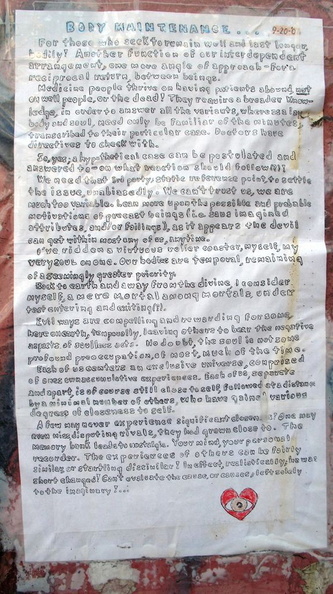 BODY MAINTENANCE.... 9-20-0
For those who seek to remain well and last longer,
Another function of our interdependent
arrangement, one more angle of approach-for a
reciprocal return, between beings.
Medicine people thrive on having patients around, not
on well people, or the dead! They require a broader know-
ledge, in order to answer all the variants, whereas in
body and soul, need only be familiar of the minutes,
transcribed to their particular case. Doctors have
directives to check with.
So, yes, a hypothetical case can be postulated and
answered to-on what reaction should follow!!?
We need that 3rd party, static reference point, to settle
the issue, unbiasedly. We can't trust us, we are
much too variable. Lean more upon the possible and probable
motivations of go-east beings (i.e. Sans imagined
attributes, and/or failings), as it appears the devil
can get within most any of us, anytime.
I've ridden a virtuous roller coaster, myself, my
very soul on one. Our bodies are temporal, remaining
of a seemingly greater priority.
Back to earth and away from the divine, I consider
myself, a mere mortal among mortals, under
test entering and exiting!!!.
Evil ways are compelling and rewarding for some
here on earth, temporally, leaving others to bear the negative
aspects of soulless acts. No doubt, the soul is not some
profound preoccupation, of most, much of the time.
Each of us centers an exclusive universe, comprised
of ones own accumulative experiences. Each of us, separate
and apart, is of course still close to self, followed at a distance
by a minimal number of others, who have gained various
degrees of closeness to self.
A few may never experience significant closeness! One may
even miss disputing rivals, they had grown close to. The
memory bank leads to nostalgia. Your mind, your personal
recorder. The experiences of others can be fairly
similar, or startling dissimilar! In effect, realistically, he was
short changed! Can't evaluate the cause, or causes, left solely
to the imaginary?...